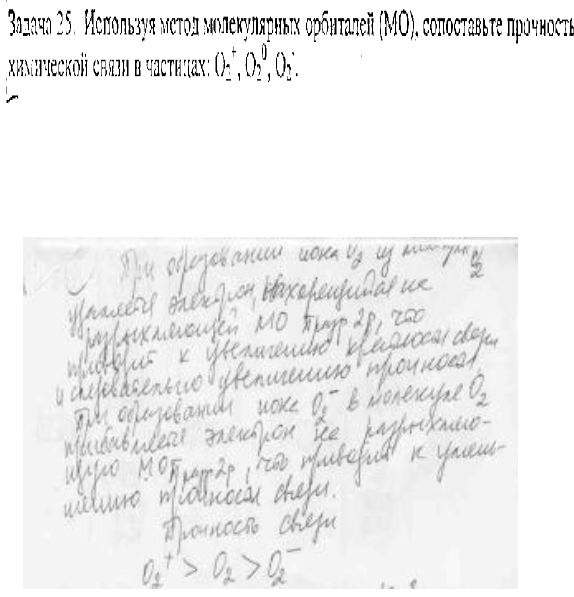 Задача 25. Используя метод молекулярных орбиталей (МО), сопоставьте прочность
химической связи в частицах: O₂⁺, O₂⁰, O₂⁻.
При образовании иона O₂ из
удаляется электрон, находящийся на
разрыхляющей МО π разр 2р, что
приводит к увеличению кратности связи
и следовательно увеличению прочности.
При образовании иона O₂⁻ в молекуле O₂
прибавляется электрон на разрыхляю-
щую МО π разр 2р, что приводит к умень-
шению прочности связи.
Прочность связи
O₂⁺ > O₂ > O₂⁻